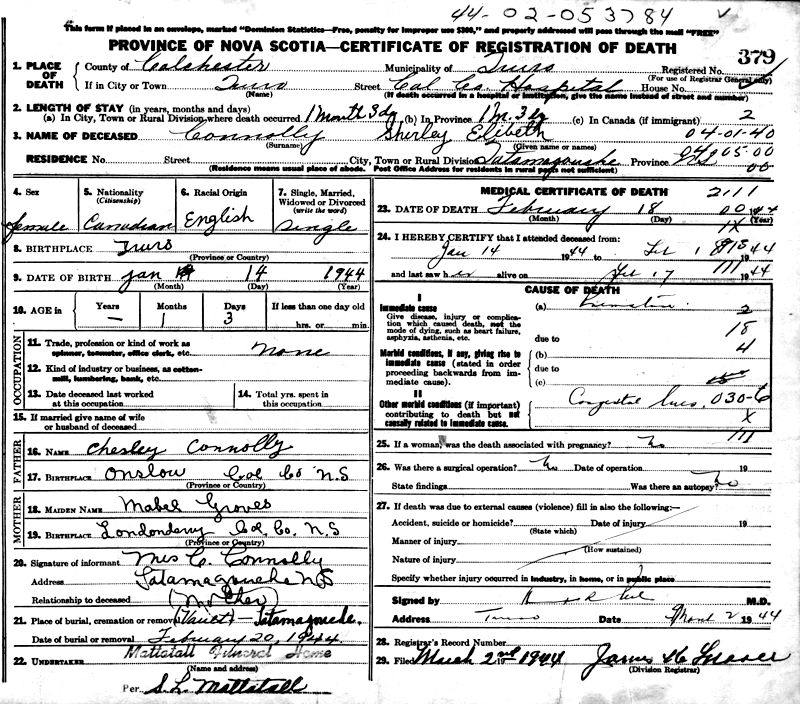 44-02-053784
This form if placed in an envelope, marked "Dominion Statistics—Free, penalty for improper use $300," and properly addressed will pass through the mail "FREE"
PROVINCE OF NOVA SCOTIA—CERTIFICATE OF REGISTRATION OF DEATH
379
1. PLACE OF DEATH County of Colchester Municipality of Truro Registered No.
(For use of Registrar General only)
If in City or Town Truro Street Col. Co. Hospital House No.
(Name) (If death occurred in a hospital or institution, give the name instead of street and number)
2. LENGTH OF STAY (in years, months and days)
(a) In City, Town or Rural Division where death occurred 1 Month 3 dy (b) In Province 1 m. 3 dy (c) In Canada (if immigrant) 2
3. NAME OF DECEASED Connolly Shirley Elibeth 04-01-40
(Surname) (Given name or names)
RESIDENCE No. Street City, Town or Rural Division Tatamagouche Province N.S. 05-00
(Residence means usual place of abode. Post Office Address for residents in rural parts not sufficient) 00
4. Sex female
5. Nationality (Citizenship) Canadian
6. Racial Origin English
7. Single, Married, Widowed or Divorced (write the word) Single
8. BIRTHPLACE Truro
(Province or Country)
9. DATE OF BIRTH Jan 14 1944
(Month) (Day) (Year)
10. AGE in Years — Months 1 Days 3 If less than one day old hrs. or min.
OCCUPATION
11. Trade, profession or kind of work as spinner, teamster, office clerk, etc. none
12. Kind of industry or business, as cotton-mill, lumbering, bank, etc.
13. Date deceased last worked at this occupation
14. Total yrs. spent in this occupation
15. If married give name of wife or husband of deceased
FATHER
16. NAME Chesley Connolly
17. BIRTHPLACE Onslow Col Co N.S
(Province or Country)
MOTHER
18. MAIDEN NAME Mabel Groves
19. BIRTHPLACE Londonderry Col. Co. N.S
(Province or Country)
20. Signature of informant Mrs C. Connolly
Address Tatamagouche N.S
Relationship to deceased (Mother)
21. Place of burial, cremation or removal (Vault) — Tatamagouche.
Date of burial or removal February 20, 1944.
22. UNDERTAKER Mattatall Funeral Home
(Name and address)
Per S. L. Mattatall
MEDICAL CERTIFICATE OF DEATH 2111
23. DATE OF DEATH February 18 44
(Month) (Day) (Year)
IX
24. I HEREBY CERTIFY that I attended deceased from:
Jan 14 1944 to Feb 18 1944
and last saw her alive on Feb 17 1944
III
CAUSE OF DEATH
I
Immediate cause
Give disease, injury or complication which caused death, not the mode of dying, such as heart failure, asphyxia, asthenia, etc.
(a) Premature 2
due to 18
Morbid conditions, if any, giving rise to immediate cause (stated in order proceeding backwards from immediate cause).
(b) 4
due to
(c)
II
Other morbid conditions (if important) contributing to death but not causally related to immediate cause.
Congenital lues. 030-6
X
III
25. If a woman, was the death associated with pregnancy? No
26. Was there a surgical operation? No Date of operation 19
State findings Was there an autopsy? No
27. If death was due to external causes (violence) fill in also the following:
Accident, suicide or homicide? Date of injury 19
(State which)
Manner of injury
(How sustained)
Nature of injury
Specify whether injury occurred in industry, in home, or in public place
Signed by M.D.
Address Truro Date March 2 1944
28. Registrar's Record Number
29. Filed March 2nd 1944
(Division Registrar)